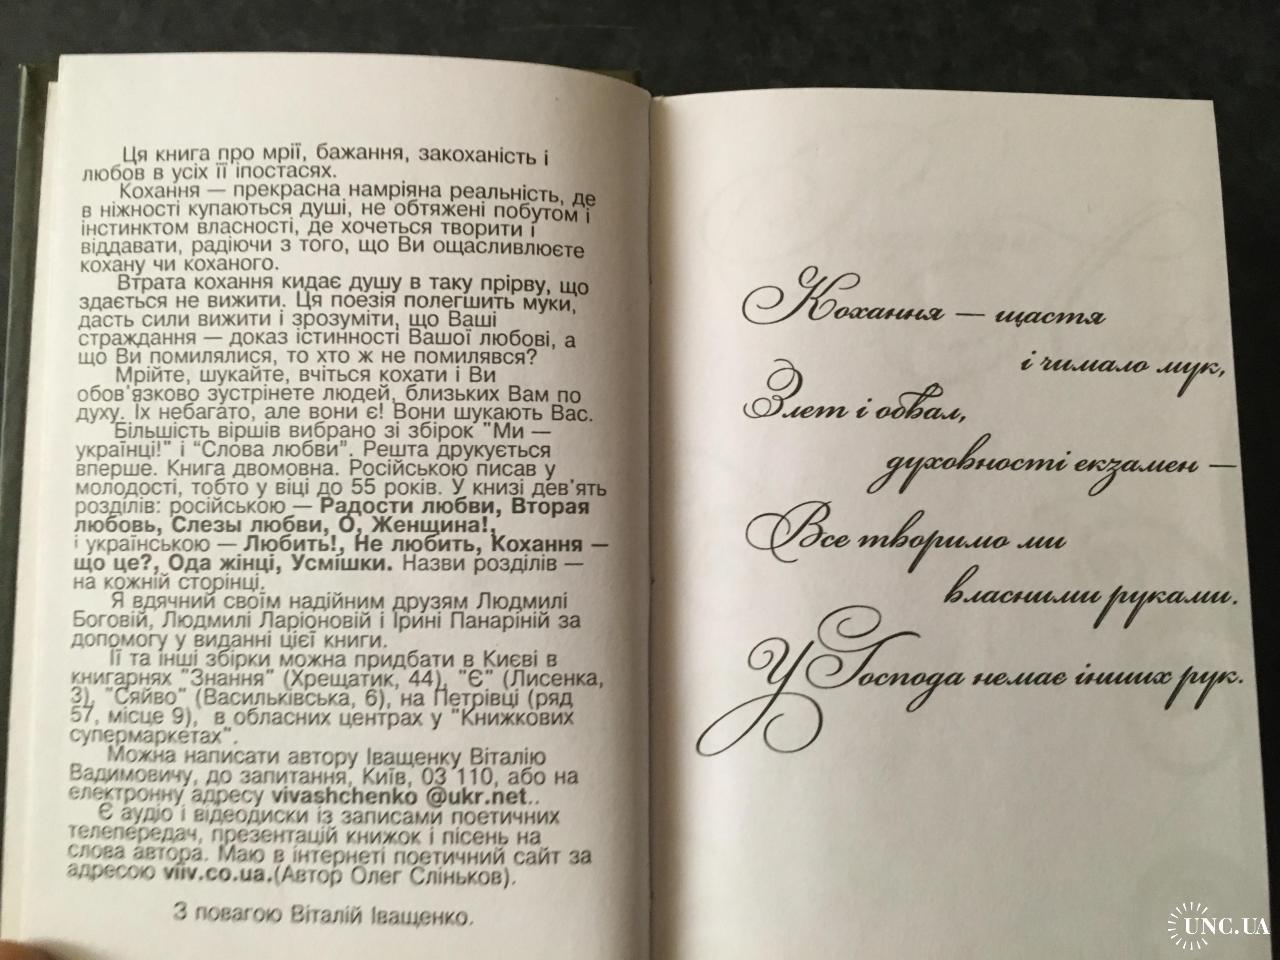 Ця книга про мрії, бажання, закоханість і
любов в усіх її іпостасях.
Кохання — прекрасна намріяна реальність, де
в ніжності купаються душі, не обтяжені побутом і
інстинктом власності, де хочеться творити і
віддавати, радіючи з того, що Ви ощасливлюєте
кохану чи коханого.
Втрата кохання кидає душу в таку прірву, що
здається не вижити. Ця поезія полегшить муки,
дасть сили вижити і зрозуміти, що Ваші
страждання — доказ істинності Вашої любові, а
що Ви помилялися, то хто ж не помилявся?
Мрійте, шукайте, вчіться кохати і Ви
обов'язково зустрінете людей, близьких Вам по
духу. Їх небагато, але вони є! Вони шукають Вас.
Більшість віршів вибрано зі збірок "Ми —
українці!" і "Слова любви". Решта друкується
вперше. Книга двомовна. Російською писав у
молодості, тобто у віці до 55 років. У книзі дев'ять
розділів: російською — Радости любви, Вторая
любовь, Слезы любви, О, Женщина!,
і українською — Любить!, Не любить, Кохання —
що це?, Ода жінці, Усмішки. Назви розділів —
на кожній сторінці.
Я вдячний своїм надійним друзям Людмилі
Боговій, Людмилі Ларіоновій і Ірині Панаріній за
допомогу у виданні цієї книги.
Її та інші збірки можна придбати в Києві в
книгарнях "Знання" (Хрещатик, 44), "Є" (Лисенка,
3), "Сяйво" (Васильківська, 6), на Петрівці (ряд
57, місце 9), в обласних центрах у "Книжкових
супермаркетах".
Можна написати автору Іващенку Віталію
Вадимовичу, до запитання, Київ, 03 110, або на
електронну адресу vivashchenko @ukr.net..
Є аудіо і відеодиски із записами поетичних
телепередач, презентацій книжок і пісень на
слова автора. Маю в інтернеті поетичний сайт за
адресою viiv.co.ua.(Автор Олег Сліньков).
З повагою Віталій Іващенко.
Кохання — щастя
і чимало мук,
Злет і обвал,
духовності екзамен —
Все творимо ми
власними руками.
У Господа немає інших рук.
UNC.UA